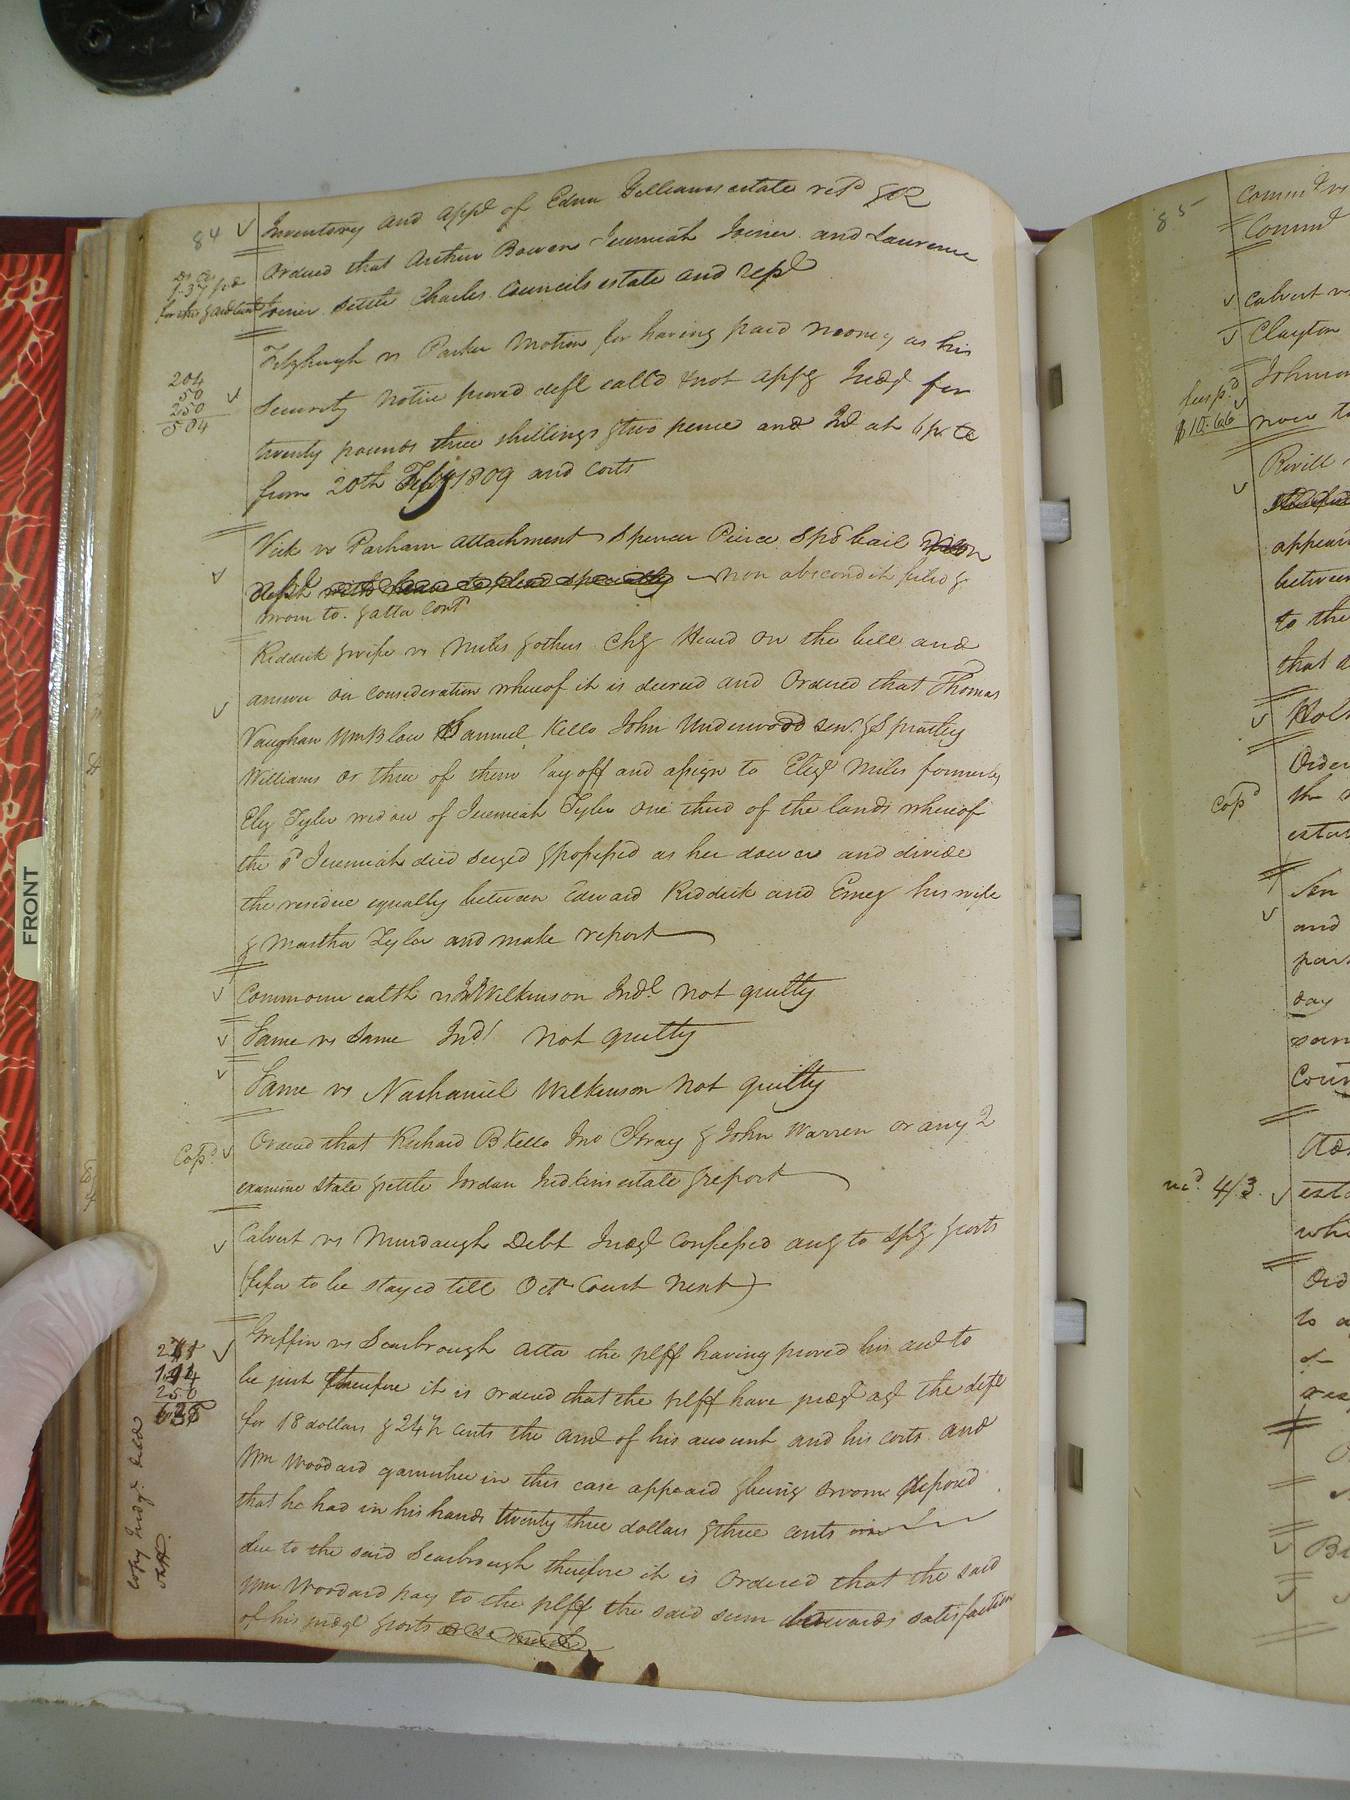 84
Inventory and appt of Edna Gilliams estate retd & OR
Ordered that Arthur Bowen Jeremiah Joiner and Lawrence
Joiner settle Charles Councils estate and rept
Fitzhugh vs Parker Motion for having paid money as his
204
50
250
504
Security notice proved deft calld & not appg Judgt for
twenty pounds three shillings & two pence and Int at 6 pr ct
from 20th Feby 1809 and costs
Vick vs Parham attachment Spencer Peirce Spl bail
deft with leave to plead specially non abscondit filed &
mom to. & atta cont
Riddick & wife vs Miles & others Chy Heard on the bill and
answer on consideration whereof it is decreed and Ordered that Thomas
Vaughan Wm Blow Samuel Kello John Underwood senr & Spratley
Williams or three of them lay off and assign to Elizt Miles formerly
Eliz Tyler widow of Jeremiah Tyler one third of the lands whereof
the sd Jeremiah died seized & possessed as her dower and divide
the residue equally between Edward Riddick and Emey his wife
& Martha Tyler and make report
Commonwealth vs Jno Wilkinson Indt not guilty
Same vs Same Indt not guilty
Same vs Nathaniel Wilkinson not guilty
Copd
Ordered that Richard B Kello Jno C Gray & John Warren or any 2
examine state & settle Jordan Judkins estate & report
Calvert vs Murdaugh Debt Judgt confessed accg to Spy & costs
(fifa to be stayed till Octr Court next)
250
Griffin vs Scarbrough atta the plff having proved his acct to
be just therefore it is ordered that the plff have judgt agt the deft
for 18 dollars & 24 1/2 cents the amt of his account and his costs and
Wm Woodard garnishee in this case appeard & being sworn deposed
that he had in his hands twenty three dollars & three cents
due to the said Scarbrough therefore it is Ordered that the said
Wm Woodard pay to the plff the said sum towards satisfaction
of his judgt & costs or so much
Copy Judgt deld
plff
85
Calvert vs
Clayton
suspd
$10.66
now to
Revill
appear
between
to the
that
Holt
Order
Copd
the
and
day
same
Cour
recd 4/3
esta
whi
Ord
to a